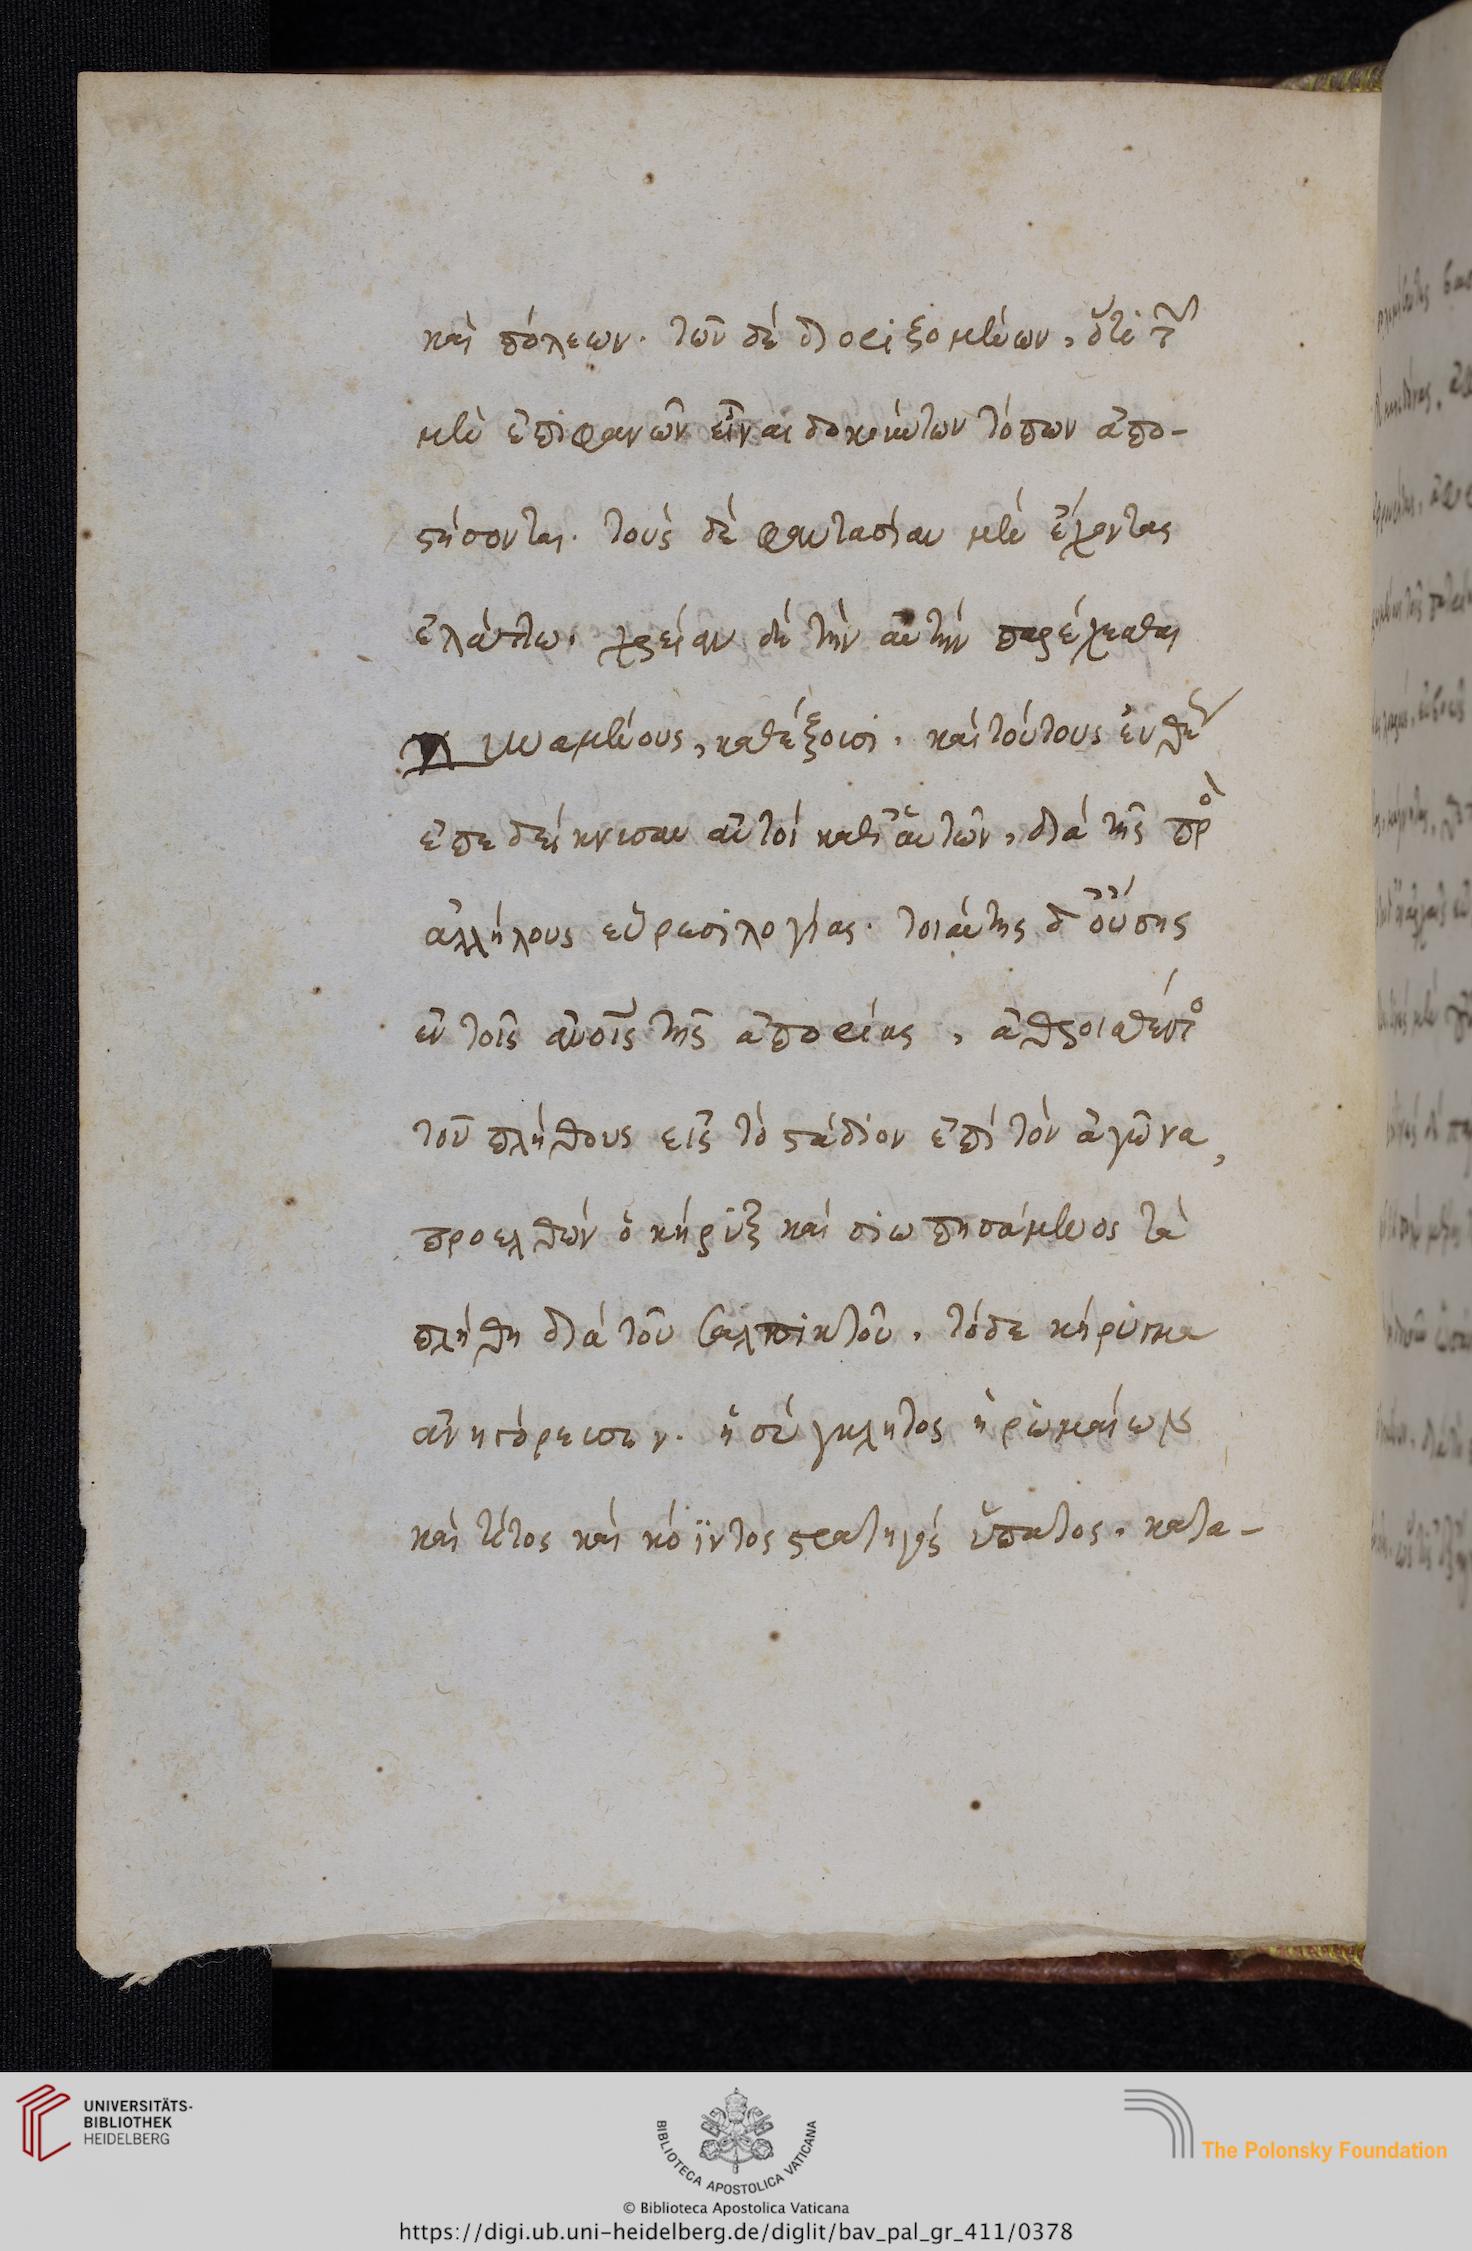 καὶ πόλεων. τῶν δὲ διοριζομένων, ὅτι τῶν
μὲν ἐπιφανῶν εἶναι δοκούντων τόπων ἀπο-
στήσονται. τοὺς δὲ φαντασίαν μὲν ἔχοντας
ἐλάττω. χρείαν δὲ τὴν αὐτὴν παρέχεσθαι
δυναμένους, καθέξουσι. καὶ τούτους ἐνθέως
ἐπεδείκνυσαν αὐτοὶ καθ' αὑτῶν, διὰ τῆς πρὸς
ἀλλήλους εὑρεσιλογίας. τοιαύτης δ' οὔσης
ἐν τοῖς ἀνοις τῆς ἀπορίας, ἀθροισθέντος
τοῦ πλήθους εἰς τὸ στάδιον ἐπὶ τὸν ἀγῶνα,
προελθὼν ὁ κήρυξ καὶ σιωπησάμενος τὰ
πλήθη διὰ τοῦ σαλπικτοῦ. τόδε κήρυγμα
ἀνηγόρευσεν. ἡ σύγκλητος ἡ ῥωμαίων
καὶ τίτος καὶ κόϊντος στρατηγὸς ὕπατος. κατα-
UNIVERSITÄTS-
BIBLIOTHEK
HEIDELBERG
BIBLIOTECA APOSTOLICA VATICANA
© Biblioteca Apostolica Vaticana
The Polonsky Foundation
https://digi.ub.uni-heidelberg.de/diglit/bav_pal_gr_411/0378